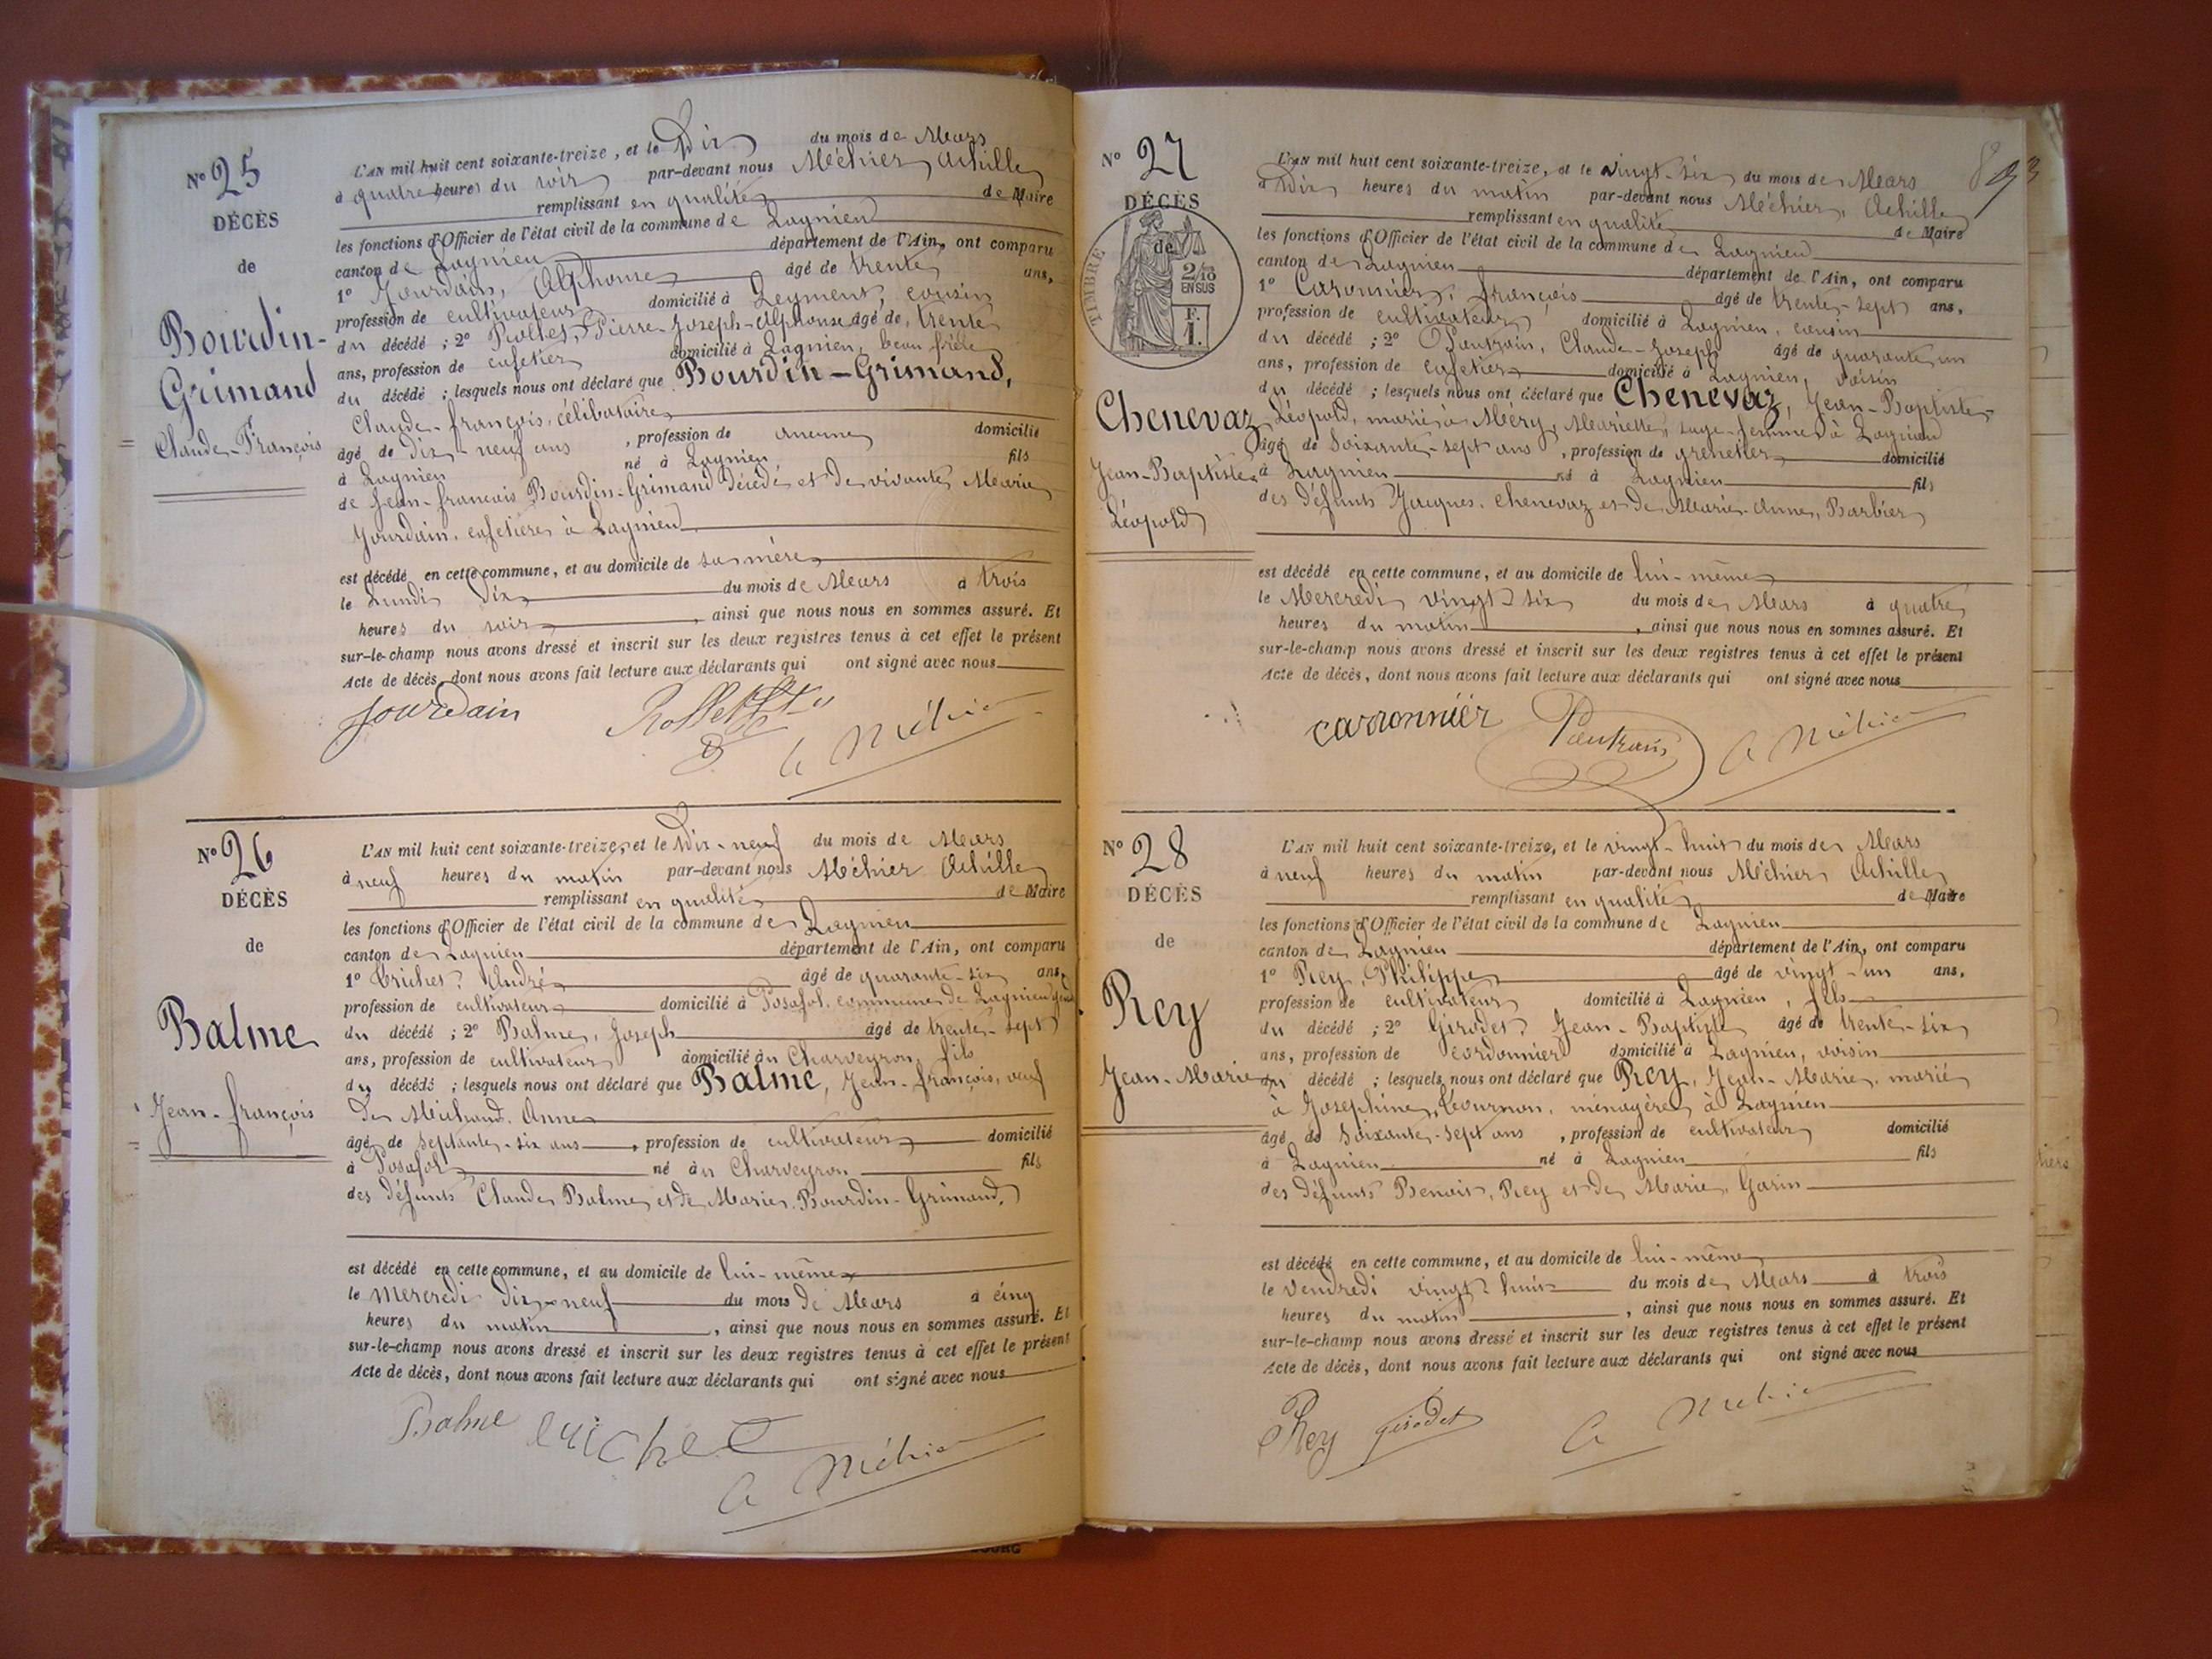 N° 25
DÉCÈS
de
Bourdin-
Grimand
Claude-François
L'AN mil huit cent soixante-treize, et le Dix du mois de Mars
à quatre heures du soir par-devant nous Méhier, Achille
remplissant en qualité de Maire
les fonctions d'Officier de l'état civil de la commune de Lagnieu
canton de Lagnieu département de l'Ain, ont comparu
1° Jourdain, Alphonse âgé de trente ans,
profession de cultivateur domicilié à Leyment, cousin
du décédé ; 2° Rollet, Pierre-Joseph-Alphonse âgé de trente
ans, profession de cafetier domicilié à Lagnieu, beau frère
du décédé ; lesquels nous ont déclaré que Bourdin-Grimand,
Claude-François, célibataire
âgé de dix-neuf ans, profession de aucune domicilié
à Lagnieu né à Lagnieu fils
de Jean-François Bourdin-Grimand décédé et de vivante Marie
Jourdain, cafetière à Lagnieu
est décédé en cette commune, et au domicile de sa mère
le Lundi dix du mois de Mars à trois
heures du soir, ainsi que nous nous en sommes assuré. Et
sur-le-champ nous avons dressé et inscrit sur les deux registres tenus à cet effet le présent
Acte de décès, dont nous avons fait lecture aux déclarants qui ont signé avec nous
Jourdain Rollet A Méhier
N° 26
DÉCÈS
de
Balme
Jean-François
L'AN mil huit cent soixante-treize, et le Dix-neuf du mois de Mars
à neuf heures du matin par-devant nous Méhier Achille
remplissant en qualité de Maire
les fonctions d'Officier de l'état civil de la commune de Lagnieu
canton de Lagnieu département de l'Ain, ont comparu
1° Trichet, André âgé de quarante-six ans,
profession de cultivateur domicilié à Posafol, commune de Lagnieu gendre
du décédé ; 2° Balme, Joseph âgé de trente-sept
ans, profession de cultivateur domicilié au Charveyron, fils
du décédé ; lesquels nous ont déclaré que Balme, Jean-François, veuf
de Michaud, Anne
âgé de septante-six ans, profession de cultivateur domicilié
à Posafol né au Charveyron fils
des défunts Claude Balme et de Marie Bourdin-Grimand.
est décédé en cette commune, et au domicile de lui-même
le mercredi dix-neuf du mois de Mars à cinq
heures du matin, ainsi que nous nous en sommes assuré. Et
sur-le-champ nous avons dressé et inscrit sur les deux registres tenus à cet effet le présent
Acte de décès, dont nous avons fait lecture aux déclarants qui ont signé avec nous
Balme trichet A Méhier
893
N° 27
DÉCÈS
de
TIMBRE
2/10
EN SUS
F.
1.
Chenevaz
Jean-Baptiste
Léopold
L'AN mil huit cent soixante-treize, et le vingt-six du mois de Mars
à Dix heures du matin par-devant nous Méhier, Achille
remplissant en qualité de Maire
les fonctions d'Officier de l'état civil de la commune de Lagnieu
canton de Lagnieu département de l'Ain, ont comparu
1° Caronnier, François âgé de trente-sept ans,
profession de cultivateur domicilié à Lagnieu, cousin
du décédé ; 2° Pautrain, Claude-Joseph âgé de quarante un
ans, profession de cafetier domicilié à Lagnieu, voisin
du décédé ; lesquels nous ont déclaré que Chenevaz, Jean-Baptiste
Léopold, marié à Mery, Mariette, sage-femme à Lagnieu
âgé de Soixante-sept ans, profession de grenetier domicilié
à Lagnieu né à Lagnieu fils
des défunts Jacques Chenevaz et de Marie-Anne, Barbier
est décédé en cette commune, et au domicile de lui-même
le Mercredi vingt-six du mois de Mars à quatre
heures du matin, ainsi que nous nous en sommes assuré. Et
sur-le-champ nous avons dressé et inscrit sur les deux registres tenus à cet effet le présent
Acte de décès, dont nous avons fait lecture aux déclarants qui ont signé avec nous
carronnier Pautrain A Méhier
N° 28
DÉCÈS
de
Rey
Jean-Marie
L'AN mil huit cent soixante-treize, et le vingt-huit du mois de Mars
à neuf heures du matin par-devant nous Méhier Achille
remplissant en qualité de Maire
les fonctions d'Officier de l'état civil de la commune de Lagnieu
canton de Lagnieu département de l'Ain, ont comparu
1° Rey, Philippe âgé de vingt-un ans,
profession de cultivateur domicilié à Lagnieu, fils
du décédé ; 2° Girodet, Jean-Baptiste âgé de trente-six
ans, profession de cordonnier domicilié à Lagnieu, voisin
du décédé ; lesquels nous ont déclaré que Rey, Jean-Marie, marié
à Josephine, Tournon, ménagère à Lagnieu
âgé de Soixante-sept ans, profession de cultivateur domicilié
à Lagnieu né à Lagnieu fils
des défunts Benoit, Rey et de Marie, Garin
est décédé en cette commune, et au domicile de lui-même
le Vendredi vingt-huit du mois de Mars à trois
heures du matin, ainsi que nous nous en sommes assuré. Et
sur-le-champ nous avons dressé et inscrit sur les deux registres tenus à cet effet le présent
Acte de décès, dont nous avons fait lecture aux déclarants qui ont signé avec nous
Rey Girodet A Méhier